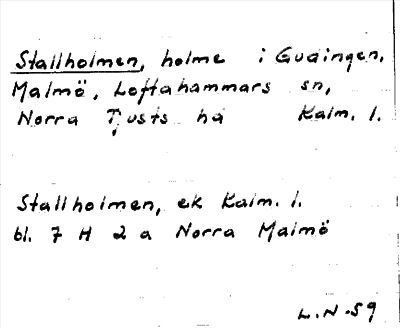 Stallholmen, holme i Gudingen,
Malmö, Loftahammars sn,
Norra Tjusts hd Kalm. l.
Stallholmen, ek Kalm. l.
bl. 7 H 2 a Norra Malmö
L.N.59